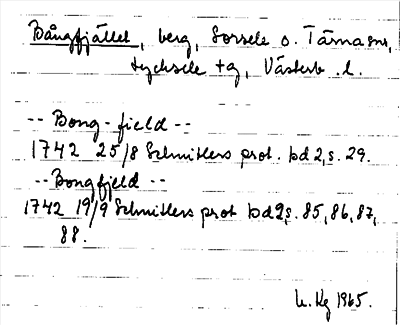 Bångfjället, berg, Sorsele o. Tärna snr,
Lycksele tg, Västerb. l.
-- Bong-field --
1742 25/8 Schnitlers prot. bd 2, s. 29.
-- Bongfjeld --
1742 19/9 Schnitlers prot bd 2, s. 85, 86, 87,
88.
U. Kg 1965.